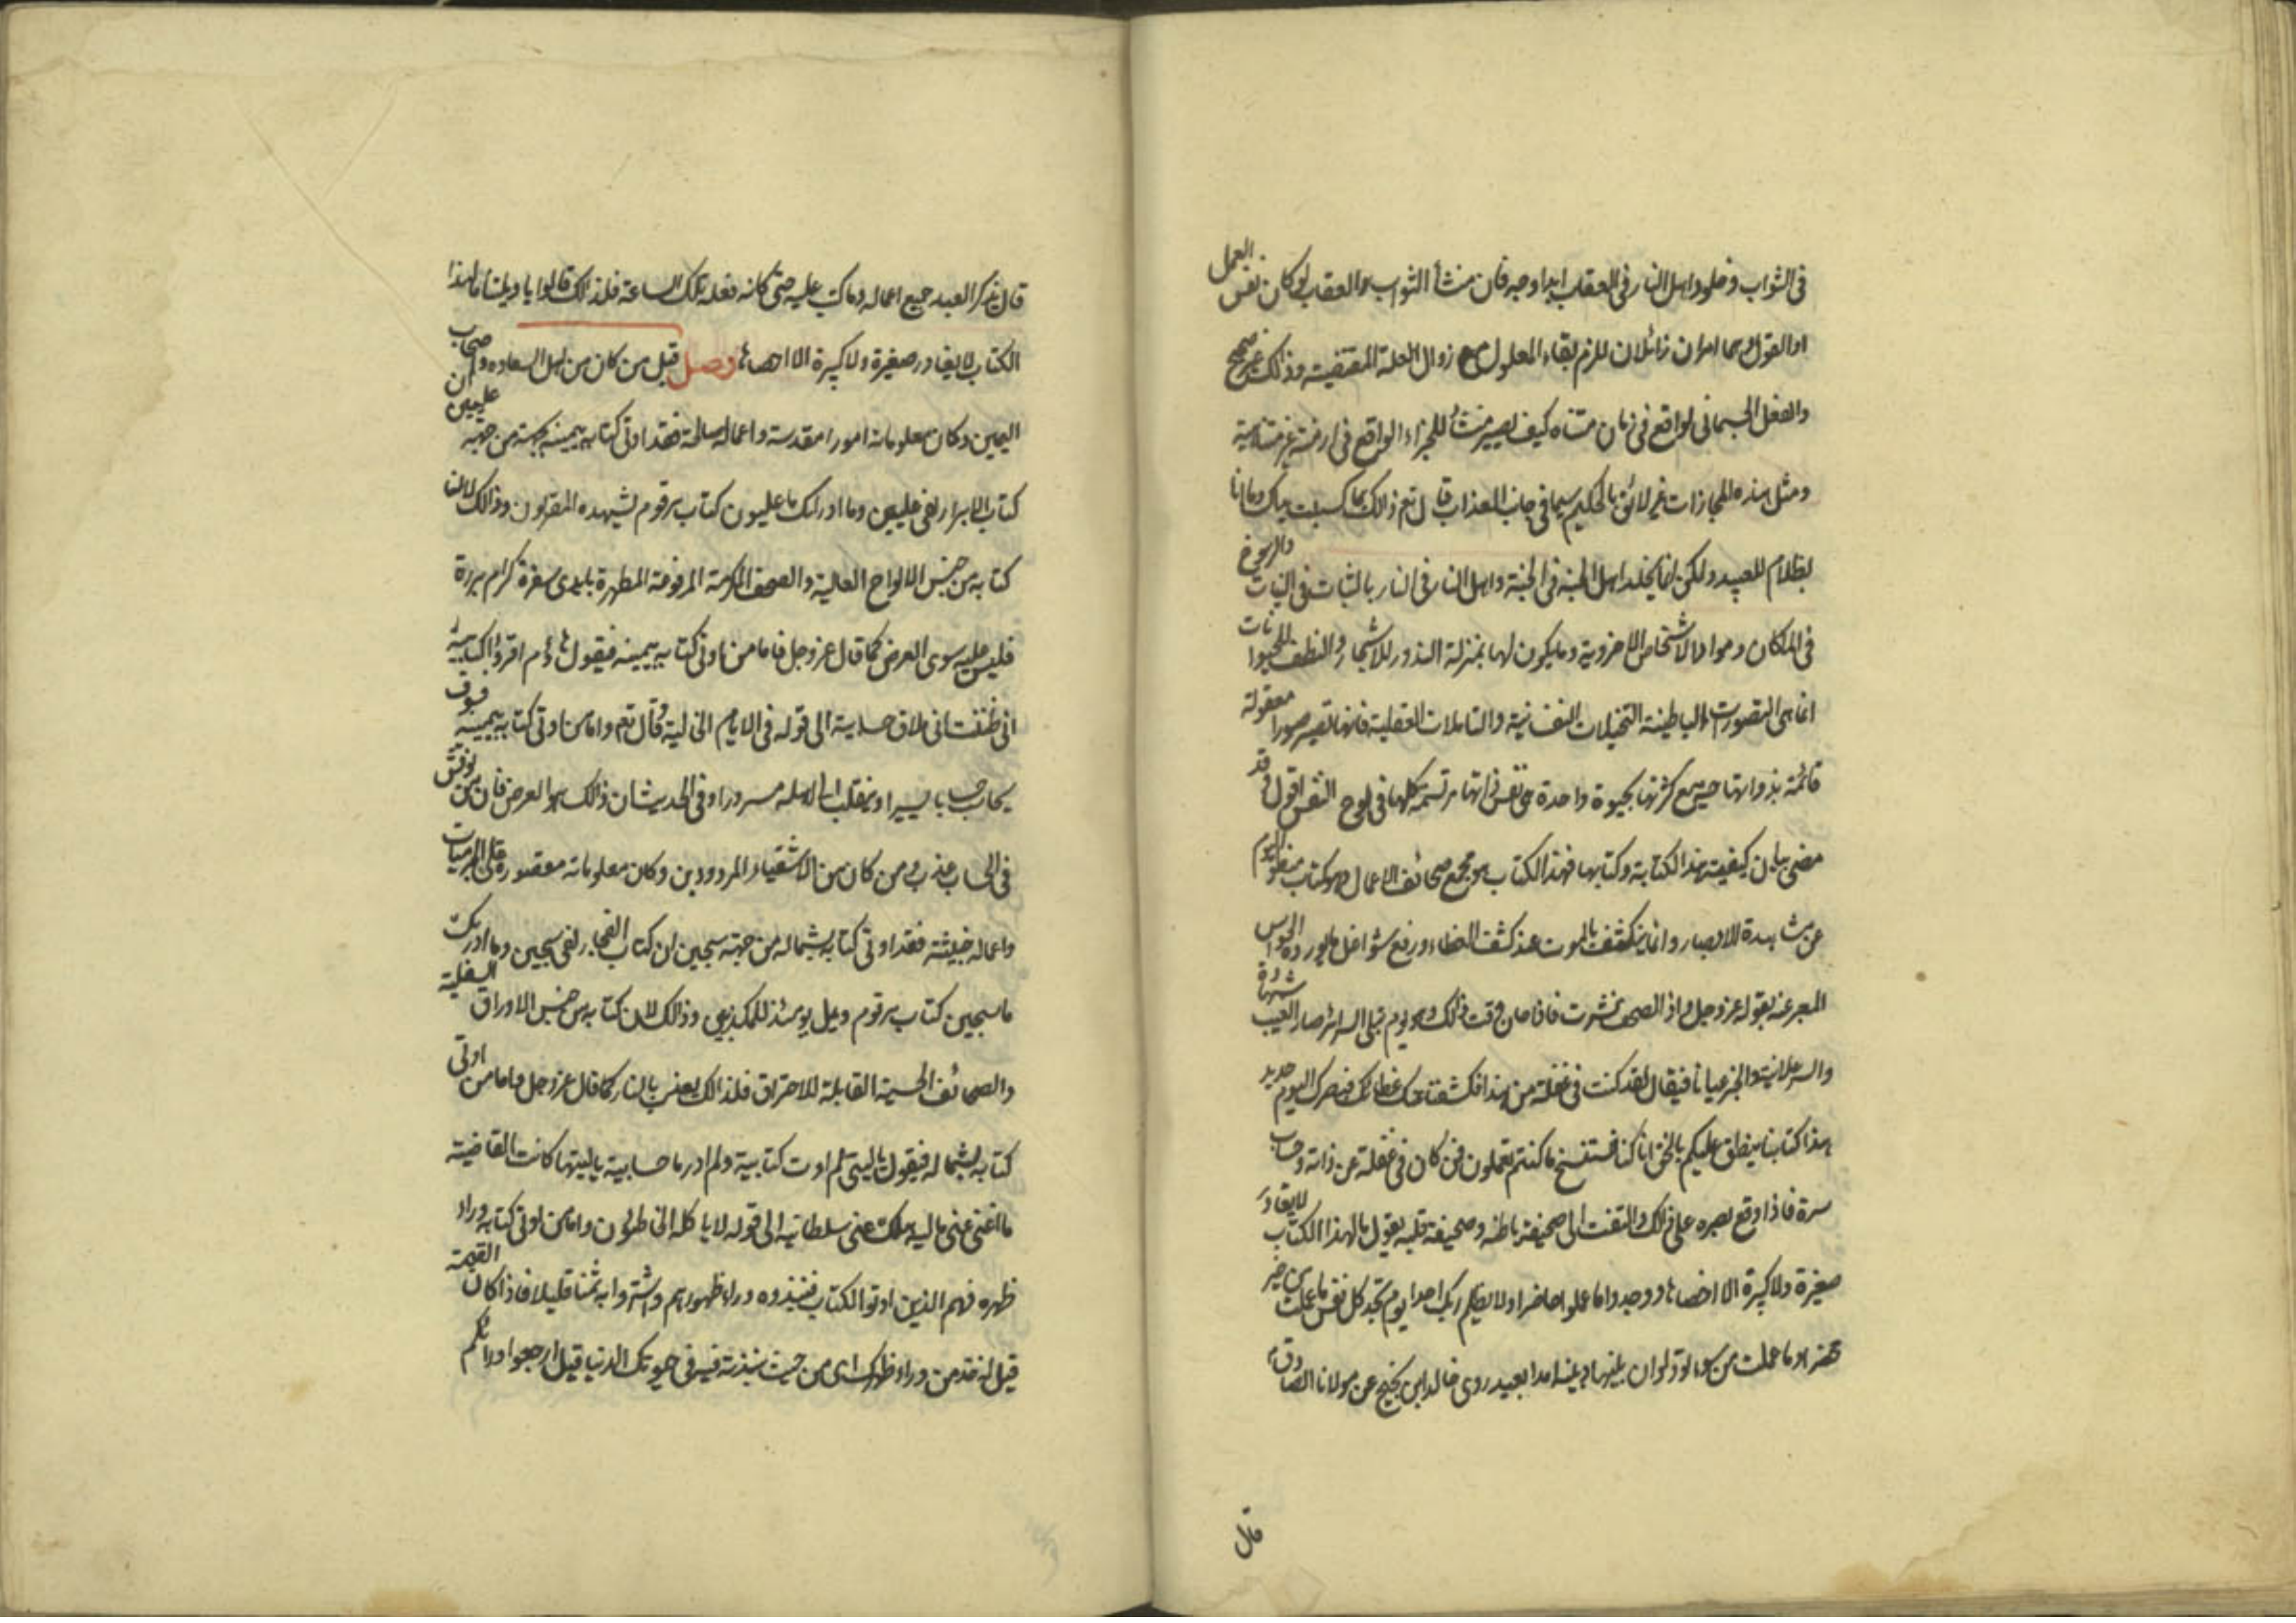 فى الثواب وخلود اهل النار فى العقاب ابدا وجه فان منشأ الثواب والعقاب لو كان نفس العمل
او القول وهما امران زائلان للزم بقاء المعلول مع زوال العلة المقتضية وذلك غير صحيح
والفعل الجسمانى الواقع فى زمان متناه كيف يصير منشأ للجزاء الواقع فى ازمنة غير متناهية
ومثل هذه المجازات غير لائق بالحكيم سيما فى جانب العذاب قال تع ذلك بما كسبت يداك وما انا
بظلام للعبيد ولكن انما يخلد اهل الجنة فى الجنة واهل النار فى النار بالثبات فى النيات والرسوخ
فى الملكات ومواد الاشخاص الاخروية وما يكون لها بمنزلة البذور للاشجار والنطف للحيوانات
انما هى التصورات الباطنية التخيلات النفسانية والتاملات العقلية فانها تصير صورا معقولة
قائمة بذواتها حية مع كثرتها بحيوة واحدة هى نفس ذاتها مرتسمة كلها فى لوح النفس اقول وقد
مضى بيان كيفية هذا الكتابة وكتابها فهذا الكتاب هو مجمع صحائف الاعمال وهو كتاب منطو اليوم
عن مشاهدة الابصار وانما ينكشف بالموت عند كشف الغطاء ورفع شواغل ما يورده الحواس
المعبر عنه بقوله عز وجل واذ الصحف نشرت فاذا حان وقت ذلك وهو يوم تبلى السرائر صار الغيب شهادة
والسر علانية والخبر عيانا فيقال لقد كنت فى غفلة من هذا فكشفنا عنك غطائك فبصرك اليوم حديد
هذا كتابنا ينطق عليكم بالحق انا كنا نستنسخ ما كنتم تعملون فمن كان فى غفلة عن ذاته وحساب
سره فاذا وقع بصره على ذلك والتفت الى صحيفة باطنه وصحيفة قلبه يقول ما لهذا الكتاب لا يغادر
صغيرة ولا كبيرة الا احصاها ووجدوا ما عملوا حاضرا ولا يظلم ربك احدا يوم تجد كل نفس ما عملت من خير
محضرا وما عملت من سوء تود لو ان بينها وبينه امدا بعيد روى خالد ابن نجيح عن مولانا الصادق ع
قال
قال يذكر العبد جميع اعماله وما كتب عليه حتى كانه فعله تلك الساعة فلذلك قالوا يا ويلتنا ما لهذا
الكتاب لا يغادر صغيرة ولا كبيرة الا احصاها وصل قيل من كان من اهل السعاده واصحاب
اليمين وكان معلوماته امورا مقدسة واعماله صالحة فقد اوتى كتابه بيمينه من جهة عليين ان
كتاب الابرار لفى عليين وما ادراك ما عليون كتاب مرقوم يشهده المقربون وذلك لان
كتابه من جنس الالواح العالية والصحف المكرمة المرفوعة المطهرة بايدى سفرة كرام بررة
فليس عليه سوى العرض كما قال عز وجل فاما من اوتى كتابه بيمينه فيقول هاؤم اقرؤا كتابيه
انى ظننت انى ملاق حسابيه الى قوله فى الايام الخالية وقال تع واما من اوتى كتابه بيمينه فسوف
يحاسب حسابا يسيرا وينقلب الى اهله مسرورا وفى الحديث ان ذلك هو العرض فان من نوقش
فى الحساب عذب ومن كان من الاشقياء المردودين وكان معلوماته مقصورة على الجرميات
واعماله خبيثة فقد اوتى كتابه بشماله من جهة سجين ان كتاب الفجار لفى سجين وما ادريك
ما سجين كتاب مرقوم ويل يومئذ للمكذبين وذلك لان كتابه من جنس الاوراق السفلية
والصحائف الحسية القابلة للاحتراق فلذلك يعذب بالنار كما قال عز وجل واما من اوتى
كتابه بشماله فيقول يا ليتنى لم اوت كتابية ولم ادر ما حسابية يا ليتها كانت القاضية
ما اغنى عنى ماليه هلك عنى سلطانيه الى قوله لا ياكله الا الخاطئون واما من اوتى كتابه وراء
ظهره فهم الذين اوتوا الكتاب فنبذوه وراء ظهورهم واشتروا به ثمنا قليلا فاذا كان القيمة
قيل له خذه من وراء ظهرك اى من حيث نبذته فيه فى حيوتك الدنيا قيل ارجعوا ورائكم